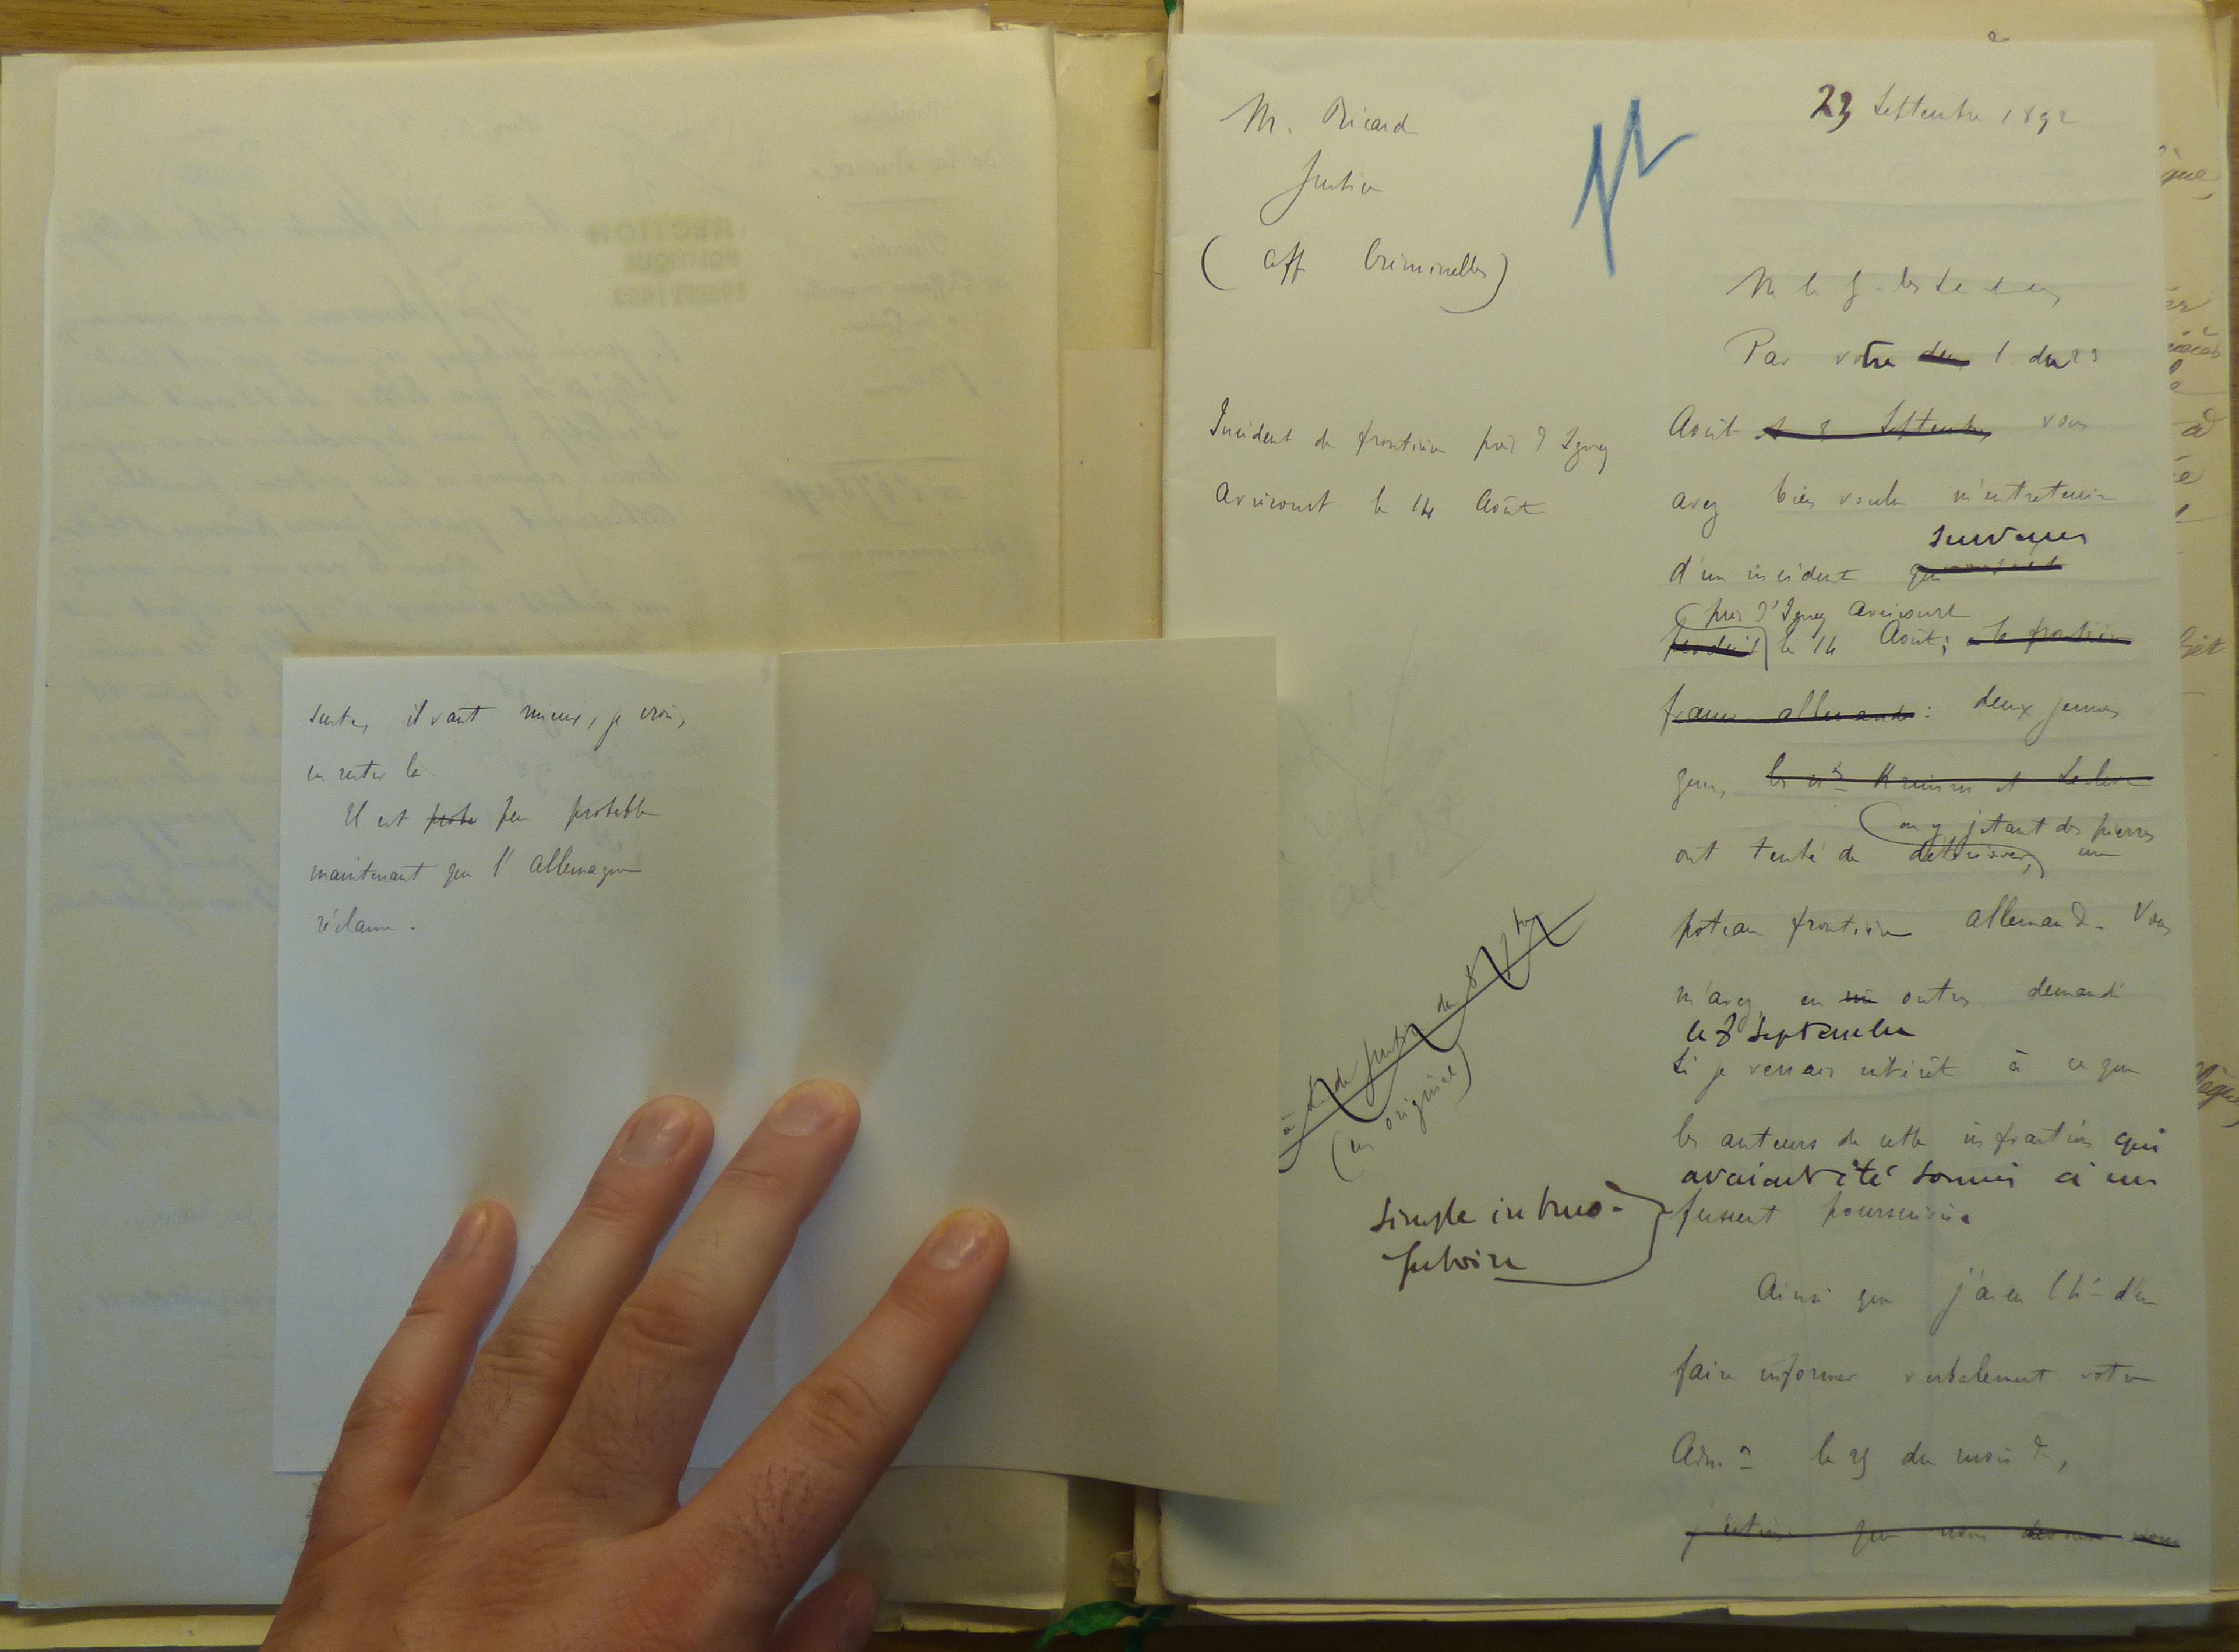 sentes, il vaut mieux, je crois,
en rester là.
Il est peu probable
maintenant que l'Allemagne
réclame.
M. Ricard
Justice
(Aff Criminelles)
Incident de frontière près d'Igney
Avricourt le 14 Août
(en original)
simple interro-
gatoire
23 Septembre 1892
Par votre l du 23
Août et 8 Septembre vous
avez bien voulu m'entretenir
survenu
d'un incident qui
près d'Igney Avricourt
produit le 14 Août; à la frontière
franco allemande: deux jeunes
gens, les
en y jetant des pierres
ont tenté de un
poteau frontière allemand. Vous
m'avez, en outre, demandé
le 8 septembre
si je verrais intérêt à ce que
les auteurs de cette infraction qui
avaient été soumis à un
fussent poursuivis.
Ainsi que j'ai eu l'h^r d'en
faire informer verbalement votre
Adm^on le 29 du mois d^r,
j'estime que nous devons nous